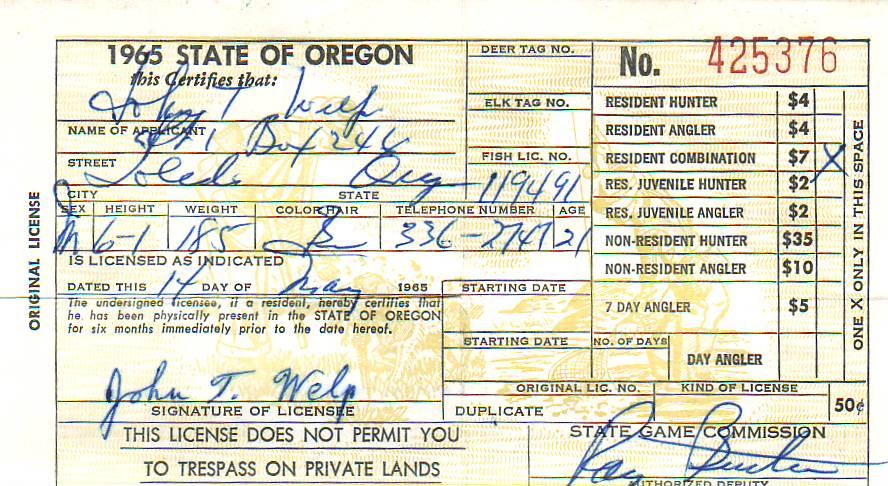 1965 STATE OF OREGON
this Certifies that:
John T Welp
NAME OF APPLICANT
Rt 1 Box 244
STREET
Toledo Oreg
CITY STATE
SEX HEIGHT WEIGHT COLOR HAIR TELEPHONE NUMBER AGE
M 6-1 185 336-2747 21
IS LICENSED AS INDICATED
DATED THIS 14 DAY OF May 1965
The undersigned licensee, if a resident, hereby certifies that
he has been physically present in the STATE OF OREGON
for six months immediately prior to the date hereof.
John T. Welp
SIGNATURE OF LICENSEE
THIS LICENSE DOES NOT PERMIT YOU
TO TRESPASS ON PRIVATE LANDS
ORIGINAL LICENSE
DEER TAG NO.
ELK TAG NO.
FISH LIC. NO.
119491
No. 425376
RESIDENT HUNTER $4
RESIDENT ANGLER $4
RESIDENT COMBINATION $7 X
RES. JUVENILE HUNTER $2
RES. JUVENILE ANGLER $2
NON-RESIDENT HUNTER $35
NON-RESIDENT ANGLER $10
7 DAY ANGLER $5
ONE X ONLY IN THIS SPACE
STARTING DATE
STARTING DATE NO. OF DAYS
DAY ANGLER
ORIGINAL LIC. NO. KIND OF LICENSE
DUPLICATE 50¢
STATE GAME COMMISSION
Ray
AUTHORIZED DEPUTY